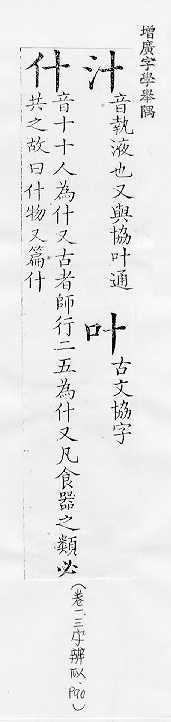 增廣字學舉隅
汁 音執液也又與協叶通 叶 古文協字
什 音十十人為什又古者師行二五為什又凡食器之類必
共之故曰什物又篇什
(卷二.三字辨似.P90)